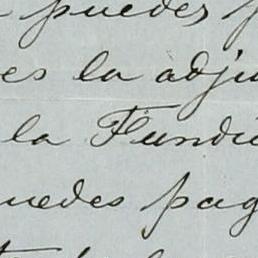 puedes p
es la adju
la Fundi
uedes pag